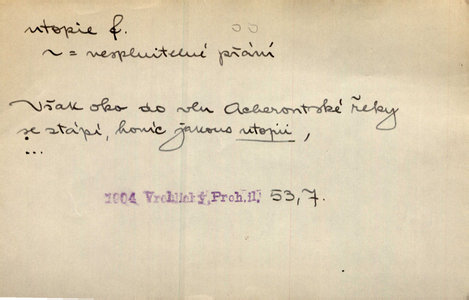 utopie f.
~ = nesplnitelné přání
Však oko do vln Acherontské řeky
se stápí, honíc jakous utopii,
...
1904 Vrchlický, Proh. II. 53,7.